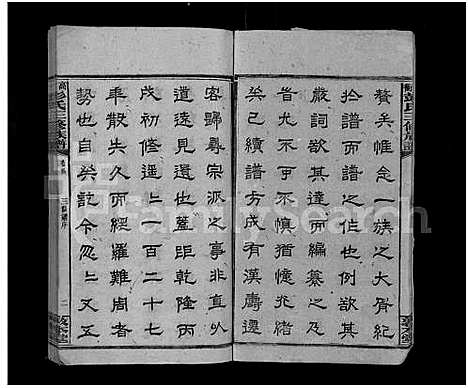 贅矣惟念一族之大骨紀
於譜而譜之作也例欲其
嚴詞欲其達而編纂之任
者尤不可不慎猶憶兆緒
矣已續譜方成有漢壽遷
客歸尋宗派之事非直以
道遠見遺也蓋距乾隆丙
戌初修遥遥一百二十七
年散失久而經羅難周者
勢也自癸訖今忽忽又五
彭氏三修族譜
三修譜序
二
FamilySearch